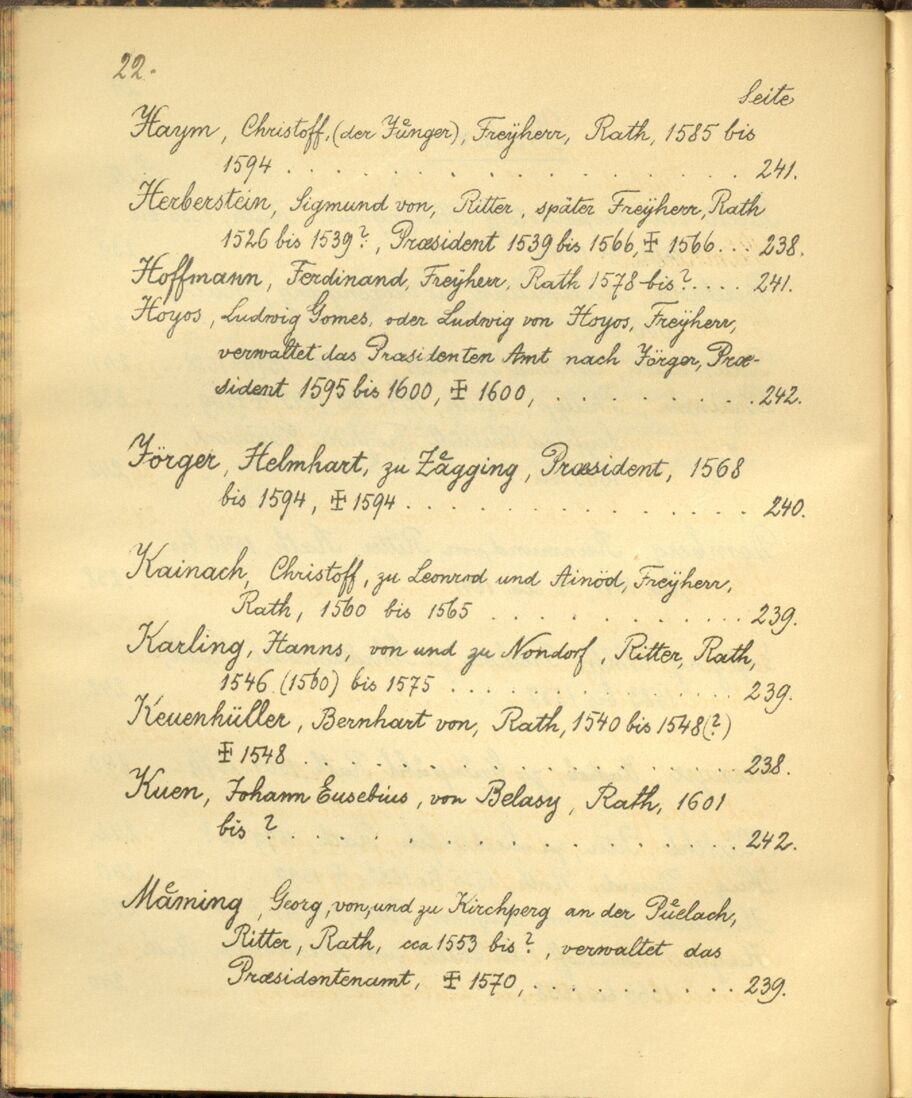 22.
Seite
Haym, Christoff, (der Jůnger), Freÿherr, Rath, 1585 bis
1594 . . . . . . . . . . . . . . . . 241.
Herberstein, Sigmund von, Ritter, später Freÿherr, Rath
1526 bis 1539?, Præsident 1539 bis 1566, ✠ 1566. . . 238.
Hoffmann, Ferdinand, Freÿherr, Rath 1578 bis?. . . . 241.
Hoyos, Ludwig Gomes, oder Ludwig von Hoyos, Freÿherr,
verwaltet das Præsidenten Amt nach Jörger, Præ-
sident 1595 bis 1600, ✠ 1600, . . . . . . . . . 242.
Jörger, Helmhart, zu Zågging, Præsident, 1568
bis 1594, ✠ 1594 . . . . . . . . . . . . . . 240.
Kainach, Christoff, zu Leonrod und Ainöd, Freÿherr,
Rath, 1560 bis 1565 . . . . . . . . . . . 239.
Karling, Hanns, von und zu Nondorf, Ritter, Rath,
1546 (1560) bis 1575 . . . . . . . . . . . . 239.
Keuenhüller, Bernhart von, Rath, 1540 bis 1548(?)
✠ 1548 . . . . . . . . . . . . . . . . 238.
Kuen, Johann Eusebius, von Belasy, Rath, 1601
bis ? . . . . . . . . . . . . . . . . 242.
Måming, Georg, von, und zu Kirchperg an der Půelach,
Ritter, Rath, cca 1553 bis ?, verwaltet das
Præsidentenamt, ✠ 1570, . . . . . . . . . 239.